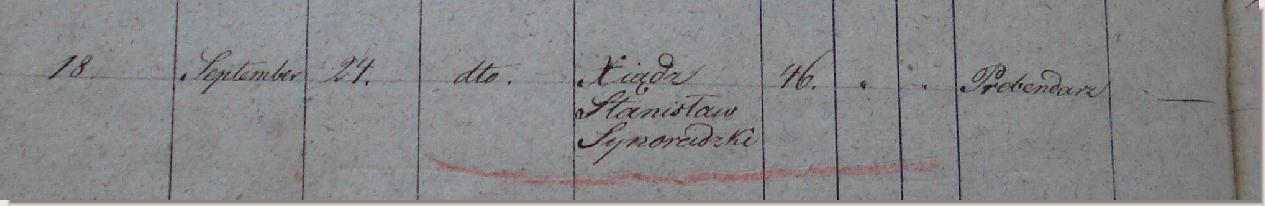 18. September 24. dto. Xiądz 46. " " Prebendarz —
Stanisław
Synoradzki